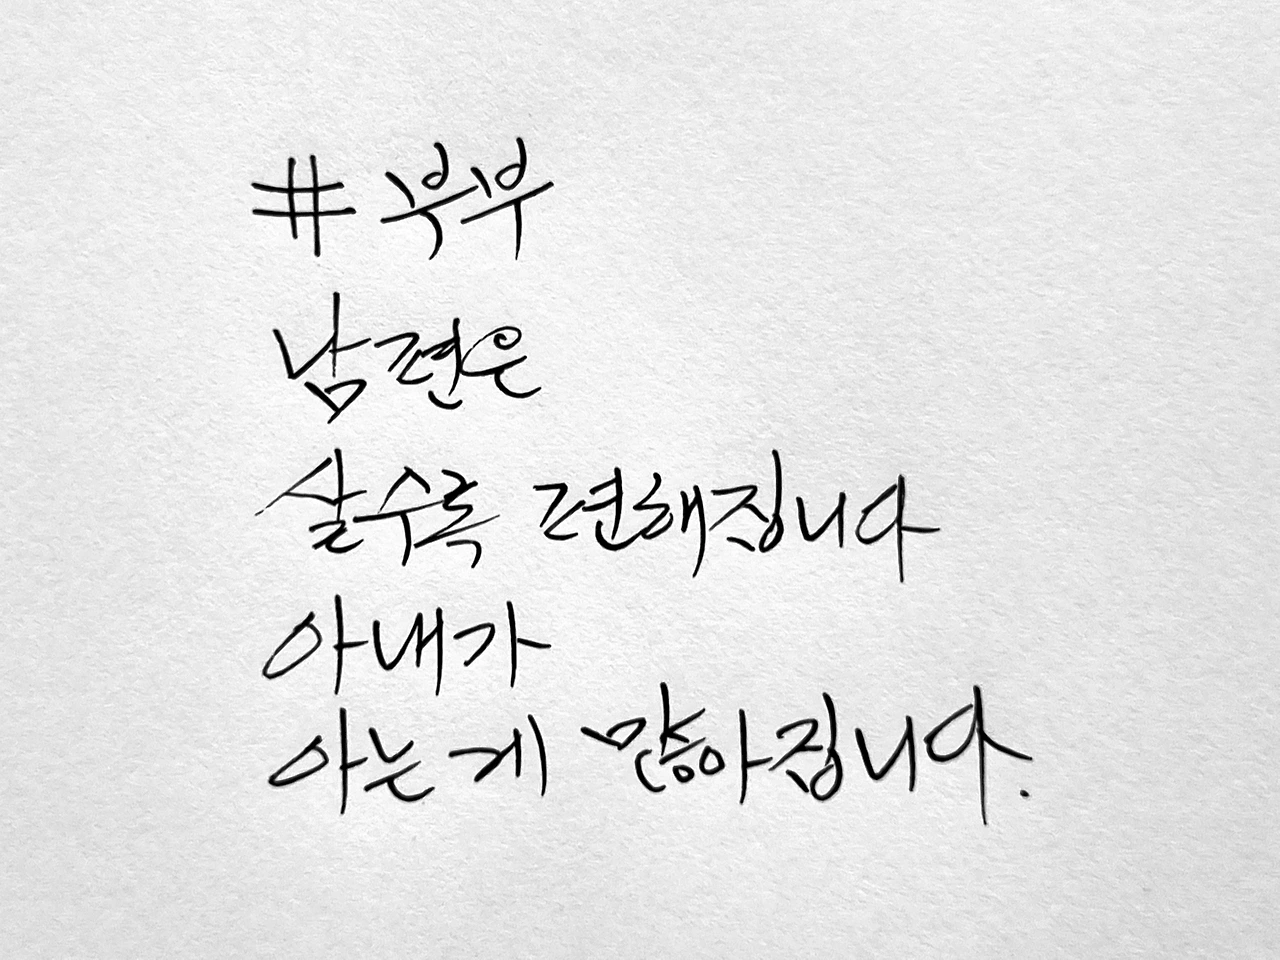 # 부부
남편은
살수록 편해집니다
아내가
아는게 많아집니다.